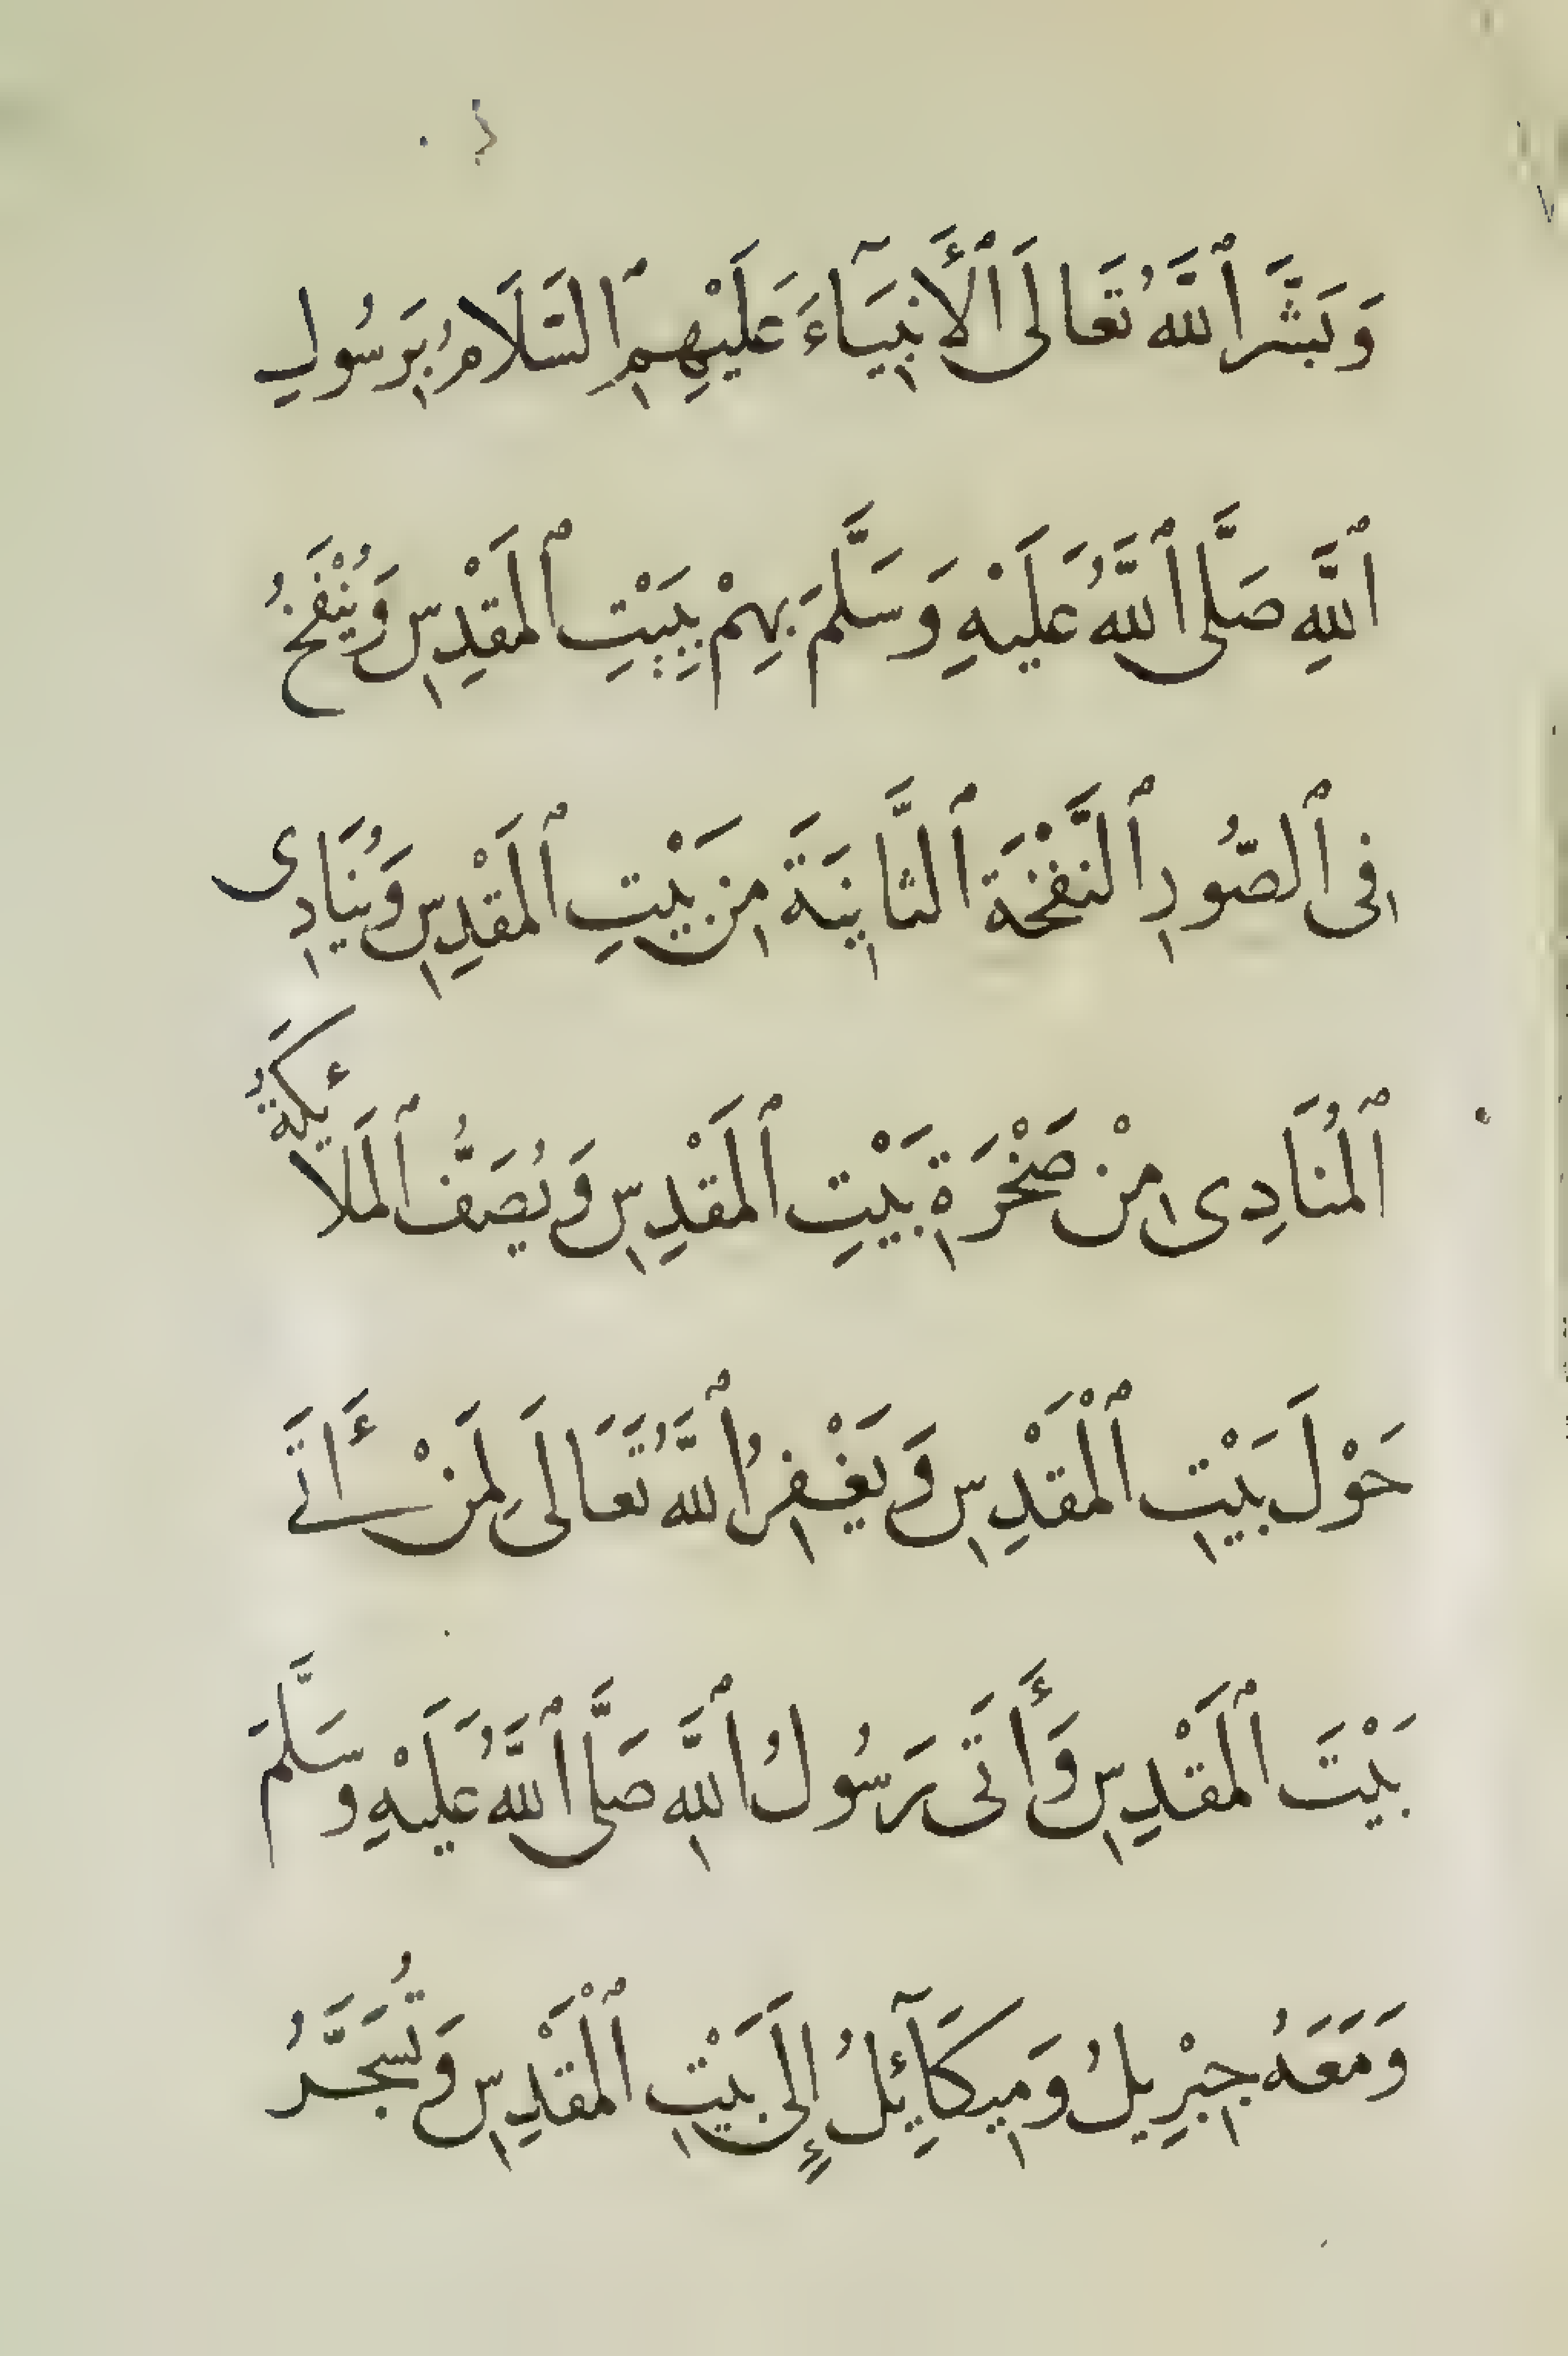 وَبَشَّرَ ٱللَّهُ تَعَالَى ٱلْأَنْبِيَآءَ عَلَيْهِمِ ٱلسَّلَامُ بِرَسُولِ
ٱللَّهِ صَلَّى ٱللَّهُ عَلَيْهِ وَسَلَّمَ بِهِمْ بِبَيْتِ ٱلْمَقْدِسِ وَيُنْفَخُ
فِى ٱلصُّورِ ٱلنَّفْخَةَ ٱلثَّانِيَةَ مِن بَيْتِ ٱلْمَقْدِسِ وَيُنَادِى
ٱلْمُنَادِى مِنْ صَخْرَةِ بَيْتِ ٱلْمَقْدِسِ وَيُصَفُّ ٱلْمَلَائِكَةُ
حَوْلَ بَيْتِ ٱلْمَقْدِسِ وَيَغْفِرُ ٱللَّهُ تَعَالَى لِمَنْ أَتَى
بَيْتَ ٱلْمَقْدِسِ وَأَتَى رَسُولُ ٱللَّهِ صَلَّى ٱللَّهُ عَلَيْهِ وَسَلَّمَ
وَمَعَهُ جِبْرِيلُ وَمِيكَآئِلُ إِلَى بَيْتِ ٱلْمَقْدِسِ وَتُسَجَّرُ